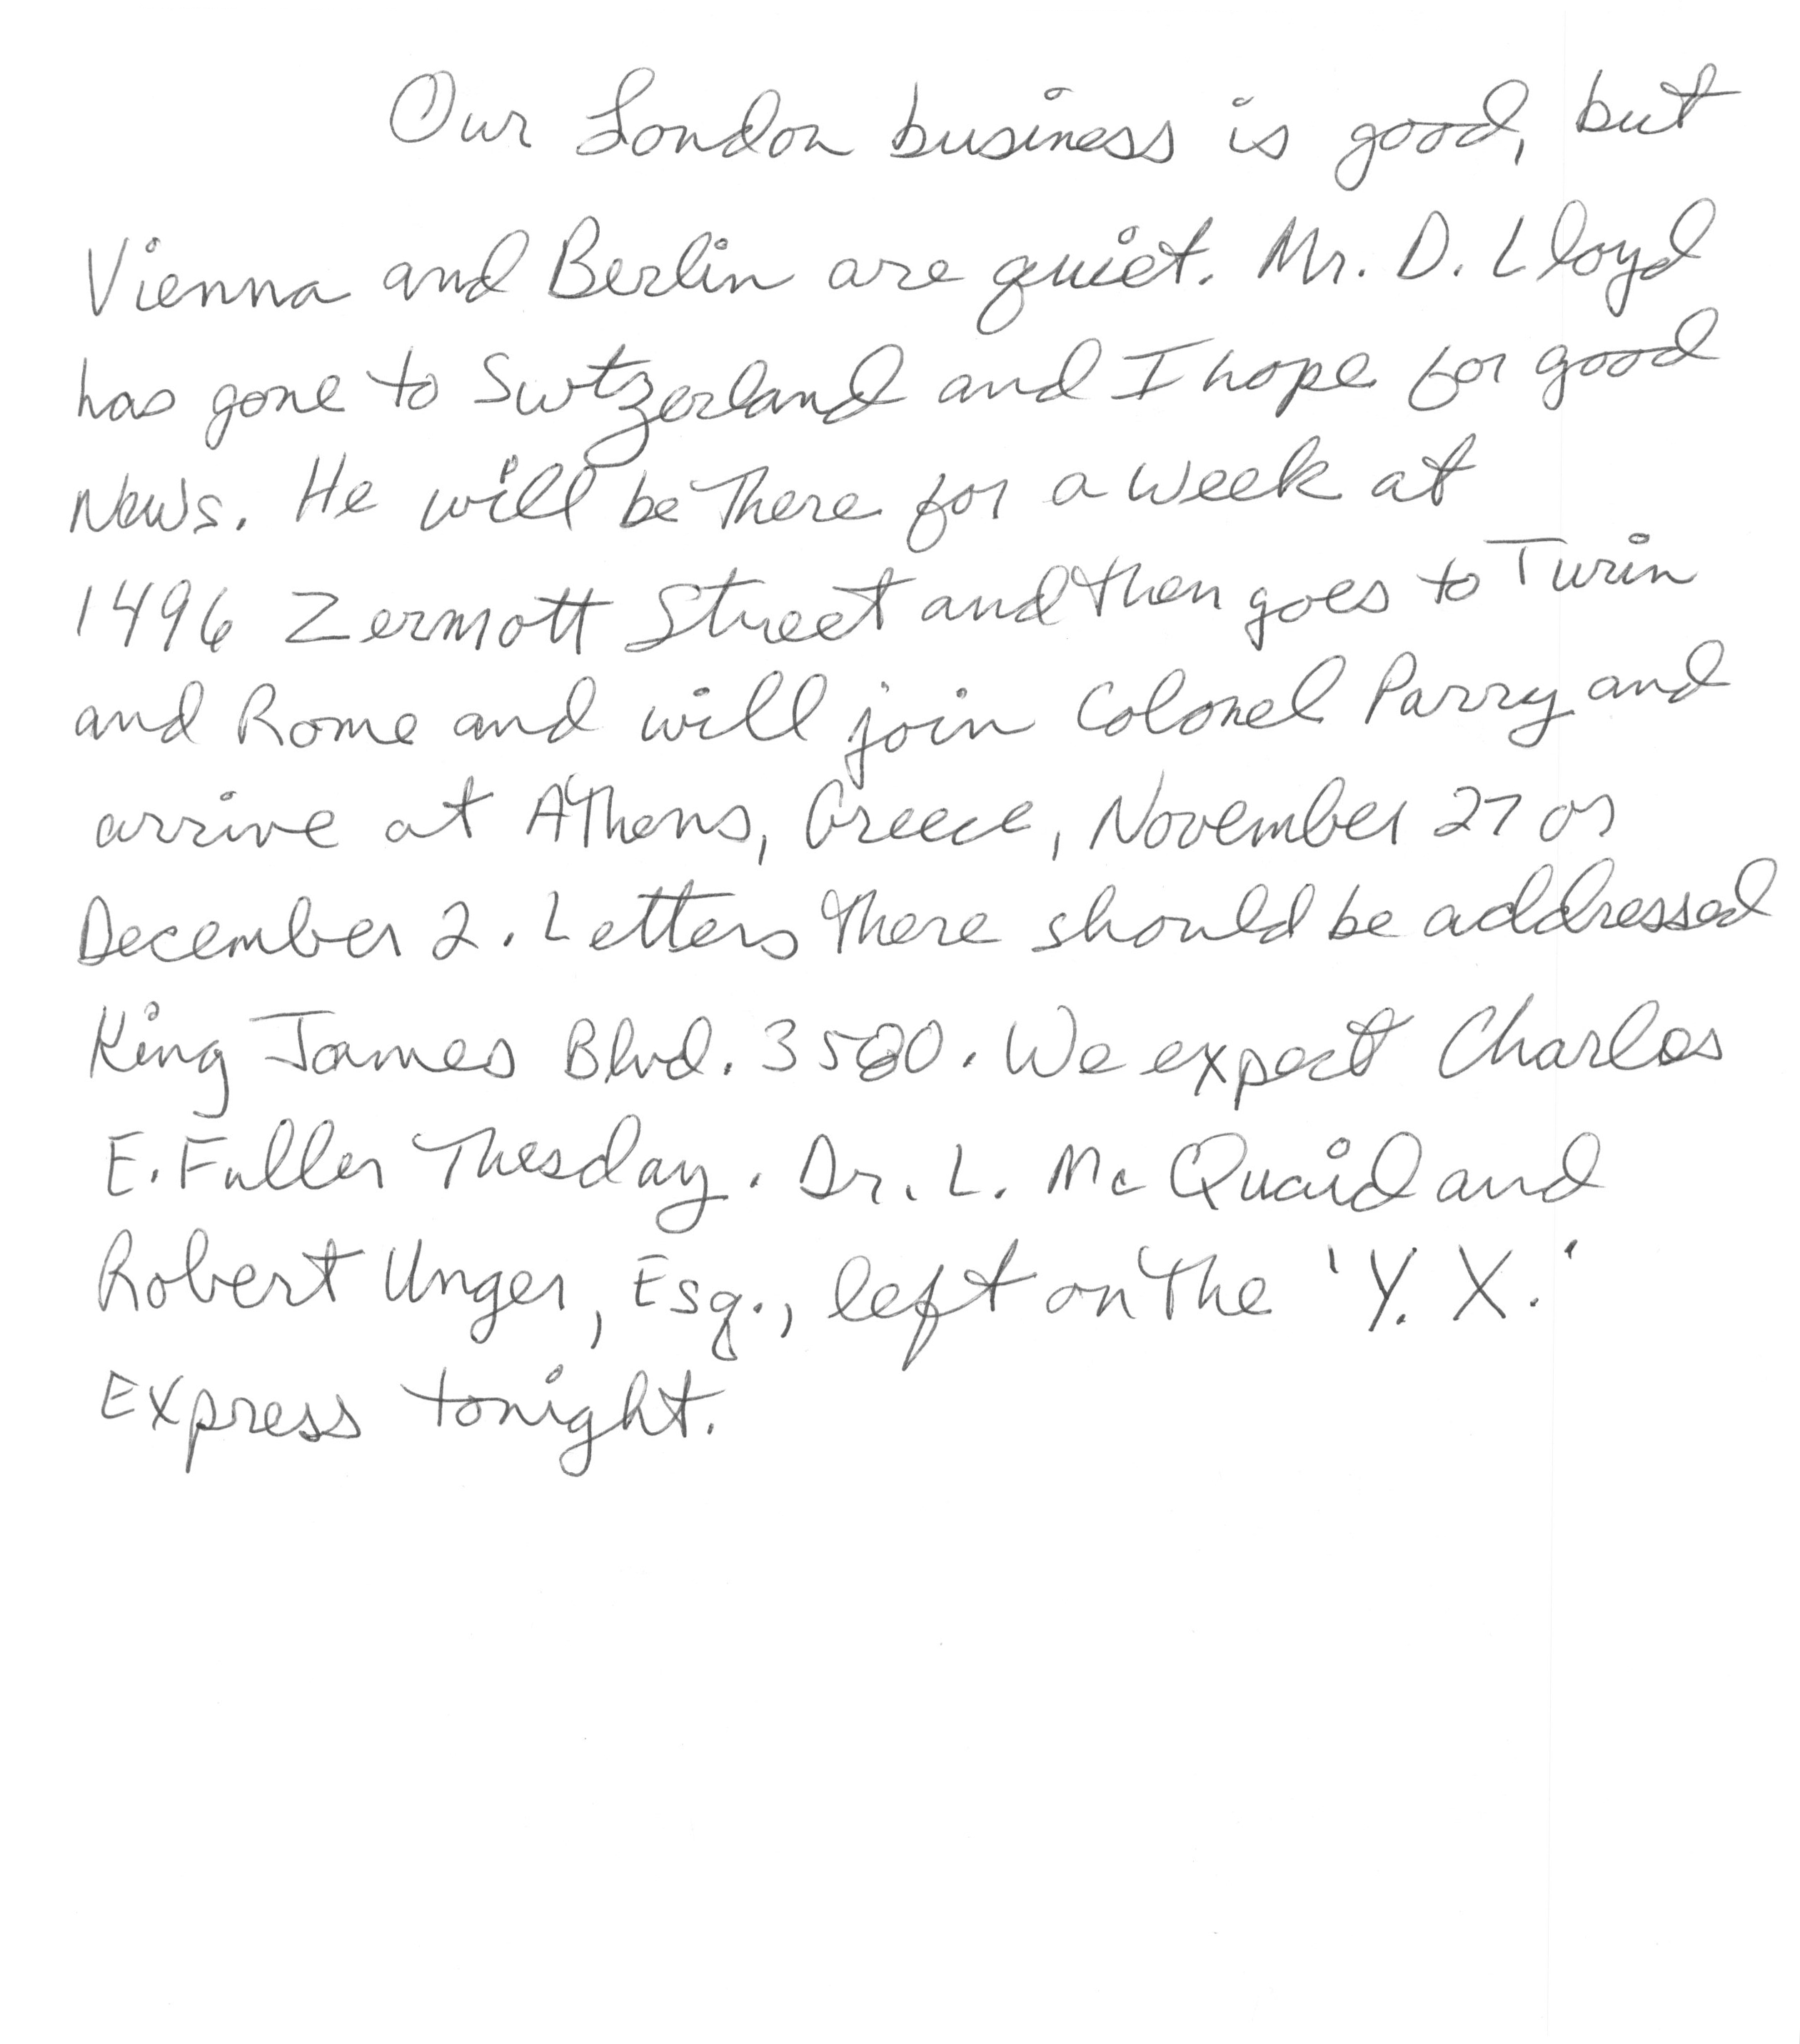 Our London business is good, but
Vienna and Berlin are quiet. Mr. D. Lloyd
has gone to Switzerland and I hope for good
News. He will be there for a week at
1496 Zermott Street and then goes to Turin
and Rome and will join Colonel Parry and
arrive at Athens, Greece, November 27 or
December 2. Letters there should be addressed
King James Blvd. 3580. We expect Charles
E. Fuller Tuesday. Dr. L. Mc Quaid and
Robert Unger, Esq., left on the 'Y. X.'
Express tonight.